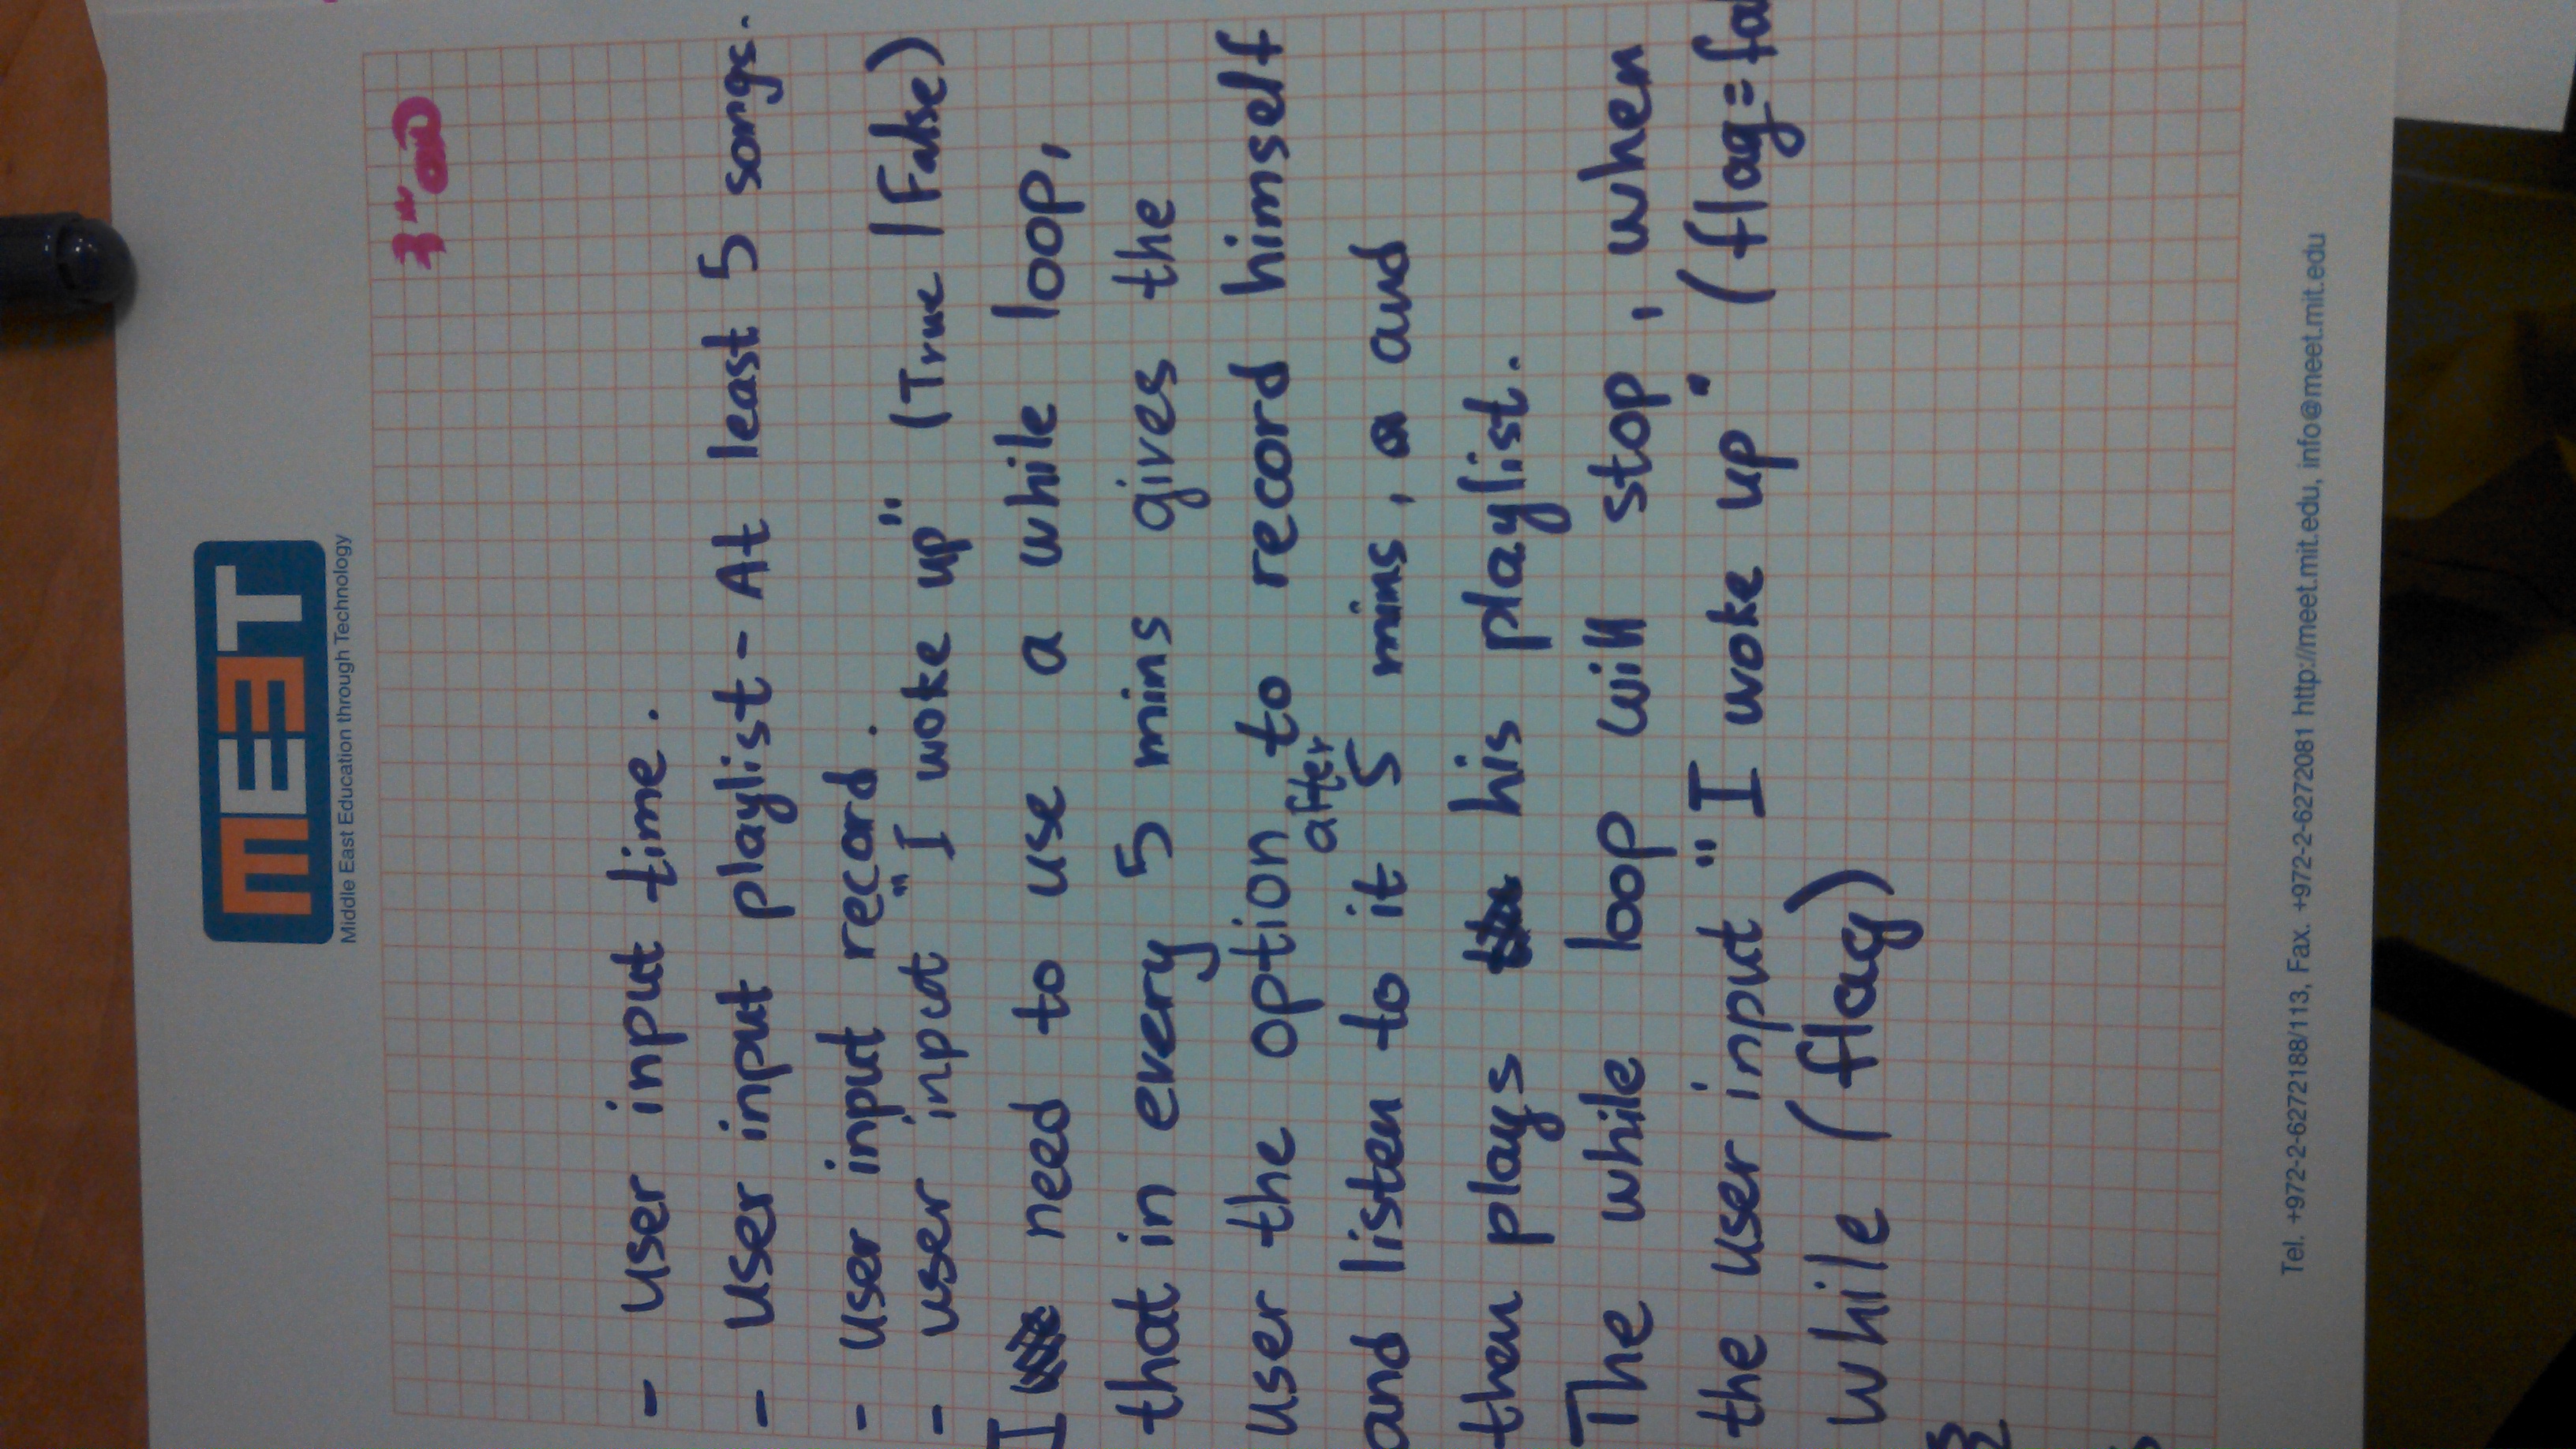 MEET
Middle East Education through Technology
- user input time.
- user input playlist - At least 5 songs.
- user input record.
- user input "I woke up" (True / False)
I need to use a while loop,
that in every 5 mins gives the
user the option to record himself
and listen to it after 5 mins, and
then plays his playlist.
The while loop will stop, when
the user input "I woke up" (flag=fa
while (flag)
{
Tel. +972-2-6272188/113, Fax. +972-2-6272081 http://meet.mit.edu, info@meet.mit.edu